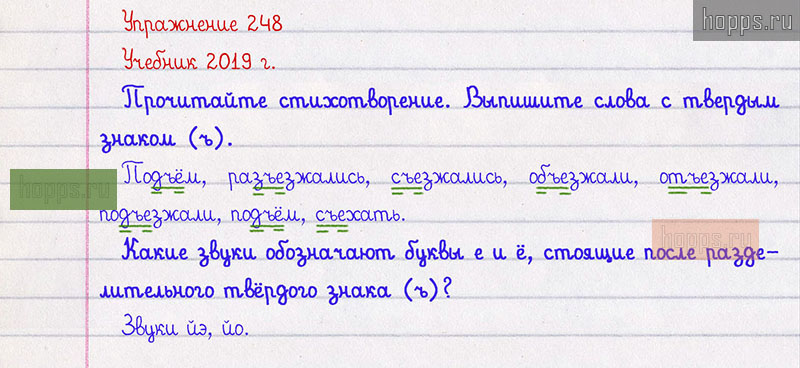 Упражнение 248
hopps.ru
Учебник 2019 г.
Прочитайте стихотворение. Выпишите слова с твердым
знаком (ъ).
Подъём, разъезжались, съезжались, объезжали, отъезжали,
hopps.ru
подъезжали, подъём, съехать.
hopps.ru
Какие звуки обозначают буквы е и ё, стоящие после разде-
лительного твёрдого знака (ъ)?
Звуки йэ, йо.